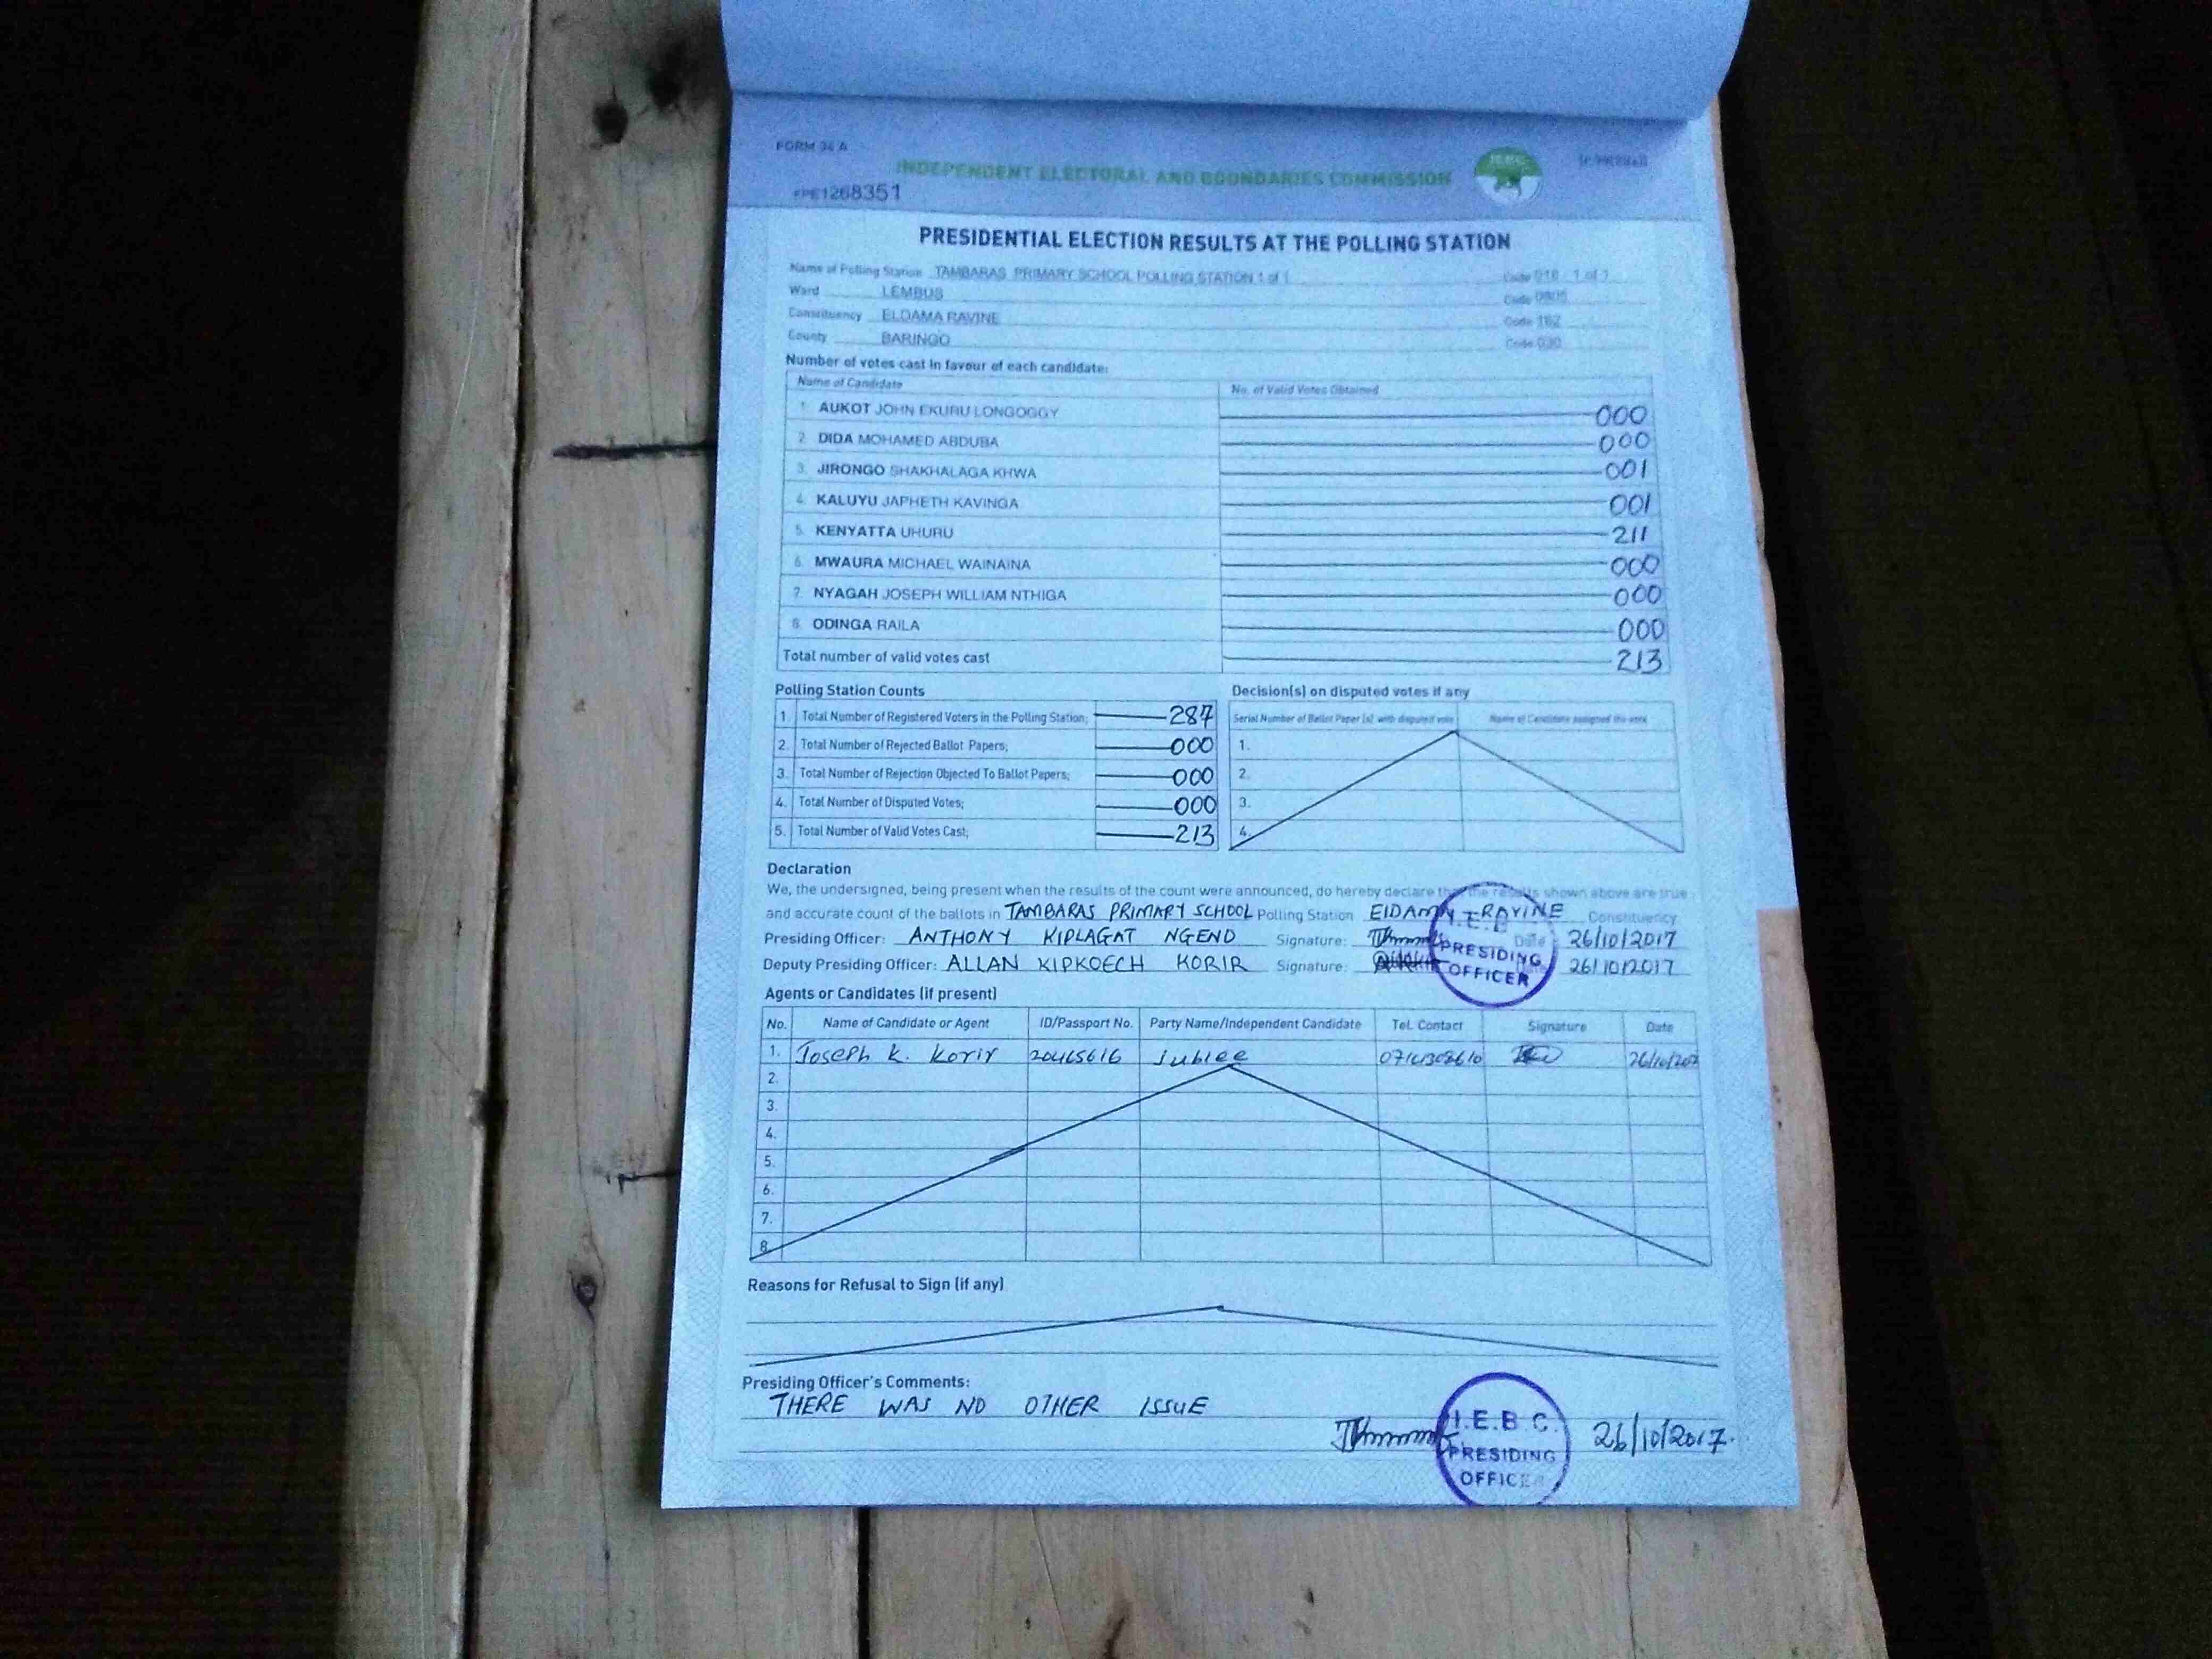 FORM 34 A
INDEPENDENT ELECTORAL AND BOUNDARIES COMMISSION
PE1268351
PRESIDENTIAL ELECTION RESULTS AT THE POLLING STATION
Name of Polling Station TAMBARAS PRIMARY SCHOOL POLLING STATION 1 of 1 Code 016 1 of 1
Ward LEMBUS Code
Constituency ELDAMA RAVINE Code 162
County BARINGO Code 030
Number of votes cast in favour of each candidate:
Name of Candidate No. of Valid Votes Obtained
1. AUKOT JOHN EKURU LONGOGGY 000
2. DIDA MOHAMED ABDUBA 000
3. JIRONGO SHAKHALAGA KHWA 001
4. KALUYU JAPHETH KAVINGA 001
5. KENYATTA UHURU 211
6. MWAURA MICHAEL WAINAINA 000
7. NYAGAH JOSEPH WILLIAM NTHIGA 000
8. ODINGA RAILA 000
Total number of valid votes cast 213
Polling Station Counts Decision(s) on disputed votes if any
Serial Number of Ballot Paper (s) with disputed vote Name of Candidate assigned the vote
1. Total Number of Registered Voters in the Polling Station; 287
2. Total Number of Rejected Ballot Papers; 000 1.
3. Total Number of Rejection Objected To Ballot Papers; 000 2.
4. Total Number of Disputed Votes; 000 3.
5. Total Number of Valid Votes Cast; 213 4.
Declaration
We, the undersigned, being present when the results of the count were announced, do hereby declare that the results shown above are true
and accurate count of the ballots in TAMBARAS PRIMARY SCHOOL Polling Station ElDAMA RAVINE Constituency
Presiding Officer: ANTHONY KIPLAGAT NGEND Signature: Date : 26/10/2017
Deputy Presiding Officer: ALLAN KIPKOECH KORIR Signature: 26/10/2017
PRESIDING OFFICER
Agents or Candidates (if present)
No. Name of Candidate or Agent ID/Passport No. Party Name/Independent Candidate Tel. Contact Signature Date
1. Joseph K. Korir 20465616 jublee 26/10/2017
2.
3.
4.
5.
6.
7.
8.
Reasons for Refusal to Sign (if any)
Presiding Officer's Comments:
THERE WAS NO OTHER ISSUE
I.E.B.C. PRESIDING OFFICER
26/10/2017.